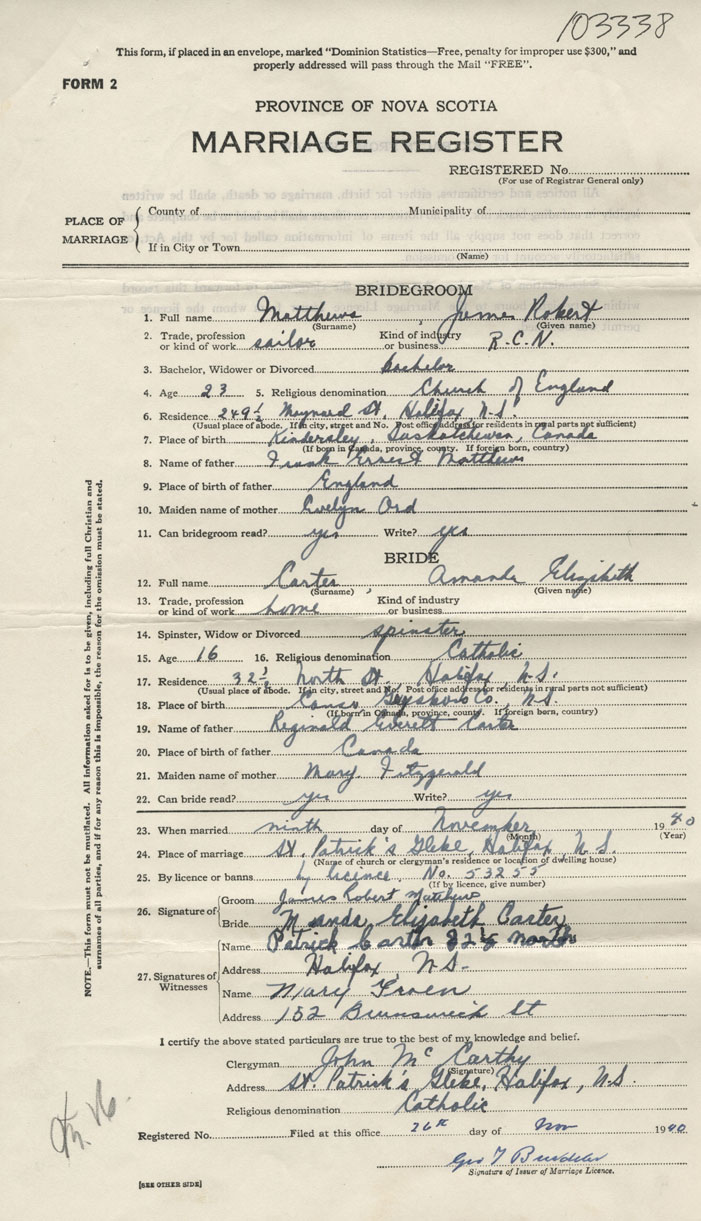 103338
This form, if placed in an envelope, marked "Dominion Statistics—Free, penalty for improper use $300," and
properly addressed will pass through the Mail "FREE".
FORM 2
PROVINCE OF NOVA SCOTIA
MARRIAGE REGISTER
REGISTERED No.
(For use of Registrar General only)
PLACE OF MARRIAGE
County of Municipality of
If in City or Town
(Name)
BRIDEGROOM
1. Full name Matthews James Robert
(Surname) (Given name)
2. Trade, profession or kind of work sailor Kind of industry or business R.C.N.
3. Bachelor, Widower or Divorced bachelor
4. Age 23 5. Religious denomination Church of England
6. Residence 249½ Maynard St. Halifax N.S.
(Usual place of abode. If in city, street and No. Post office address for residents in rural parts not sufficient)
7. Place of birth Kindersley, Saskatchewan, Canada
(If born in Canada, province, county. If foreign born, country)
8. Name of father Frank Ernest Matthews
9. Place of birth of father England
10. Maiden name of mother Evelyn Ord
11. Can bridegroom read? yes Write? yes
BRIDE
12. Full name Carter Amanda Elizabeth
(Surname) (Given name)
13. Trade, profession or kind of work home Kind of industry or business
14. Spinster, Widow or Divorced spinster
15. Age 16 16. Religious denomination Catholic
17. Residence 32½ North St. Halifax N.S.
(Usual place of abode. If in city, street and No. Post office address for residents in rural parts not sufficient)
18. Place of birth Canso Co. N.S.
(If born in Canada, province, county. If foreign born, country)
19. Name of father Reginald Everett Carter
20. Place of birth of father Canada
21. Maiden name of mother Mary Fitzgerald
22. Can bride read? yes Write? yes
23. When married ninth day of November 1940
(Month) (Year)
24. Place of marriage St. Patrick's Glebe, Halifax, N.S.
(Name of church or clergyman's residence or location of dwelling house)
25. By licence or banns by licence. No. 53255
(If by licence, give number)
26. Signature of
Groom James Robert Matthews
Bride Elizabeth Carter
27. Signatures of Witnesses
Name Patrick Carter 32½ North
Address Halifax N.S.
Name Mary
Address 152 Brunswick St
I certify the above stated particulars are true to the best of my knowledge and belief.
Clergyman John McCarthy
(Signature)
Address St. Patrick's Glebe, Halifax, N.S.
Religious denomination Catholic
Registered No. Filed at this office 26th day of Nov 1940
Geo T
Signature of Issuer of Marriage Licence.
[SEE OTHER SIDE]
NOTE.—This form must not be mutilated. All information asked for is to be given, including full Christian and
surnames of all parties, and if for any reason this is impossible, the reason for the omission must be stated.